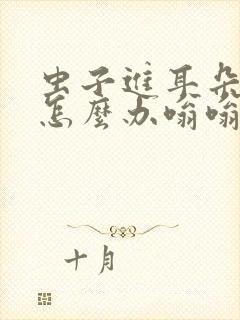 虫子进耳朵
怎麼办嗡嗡
十月